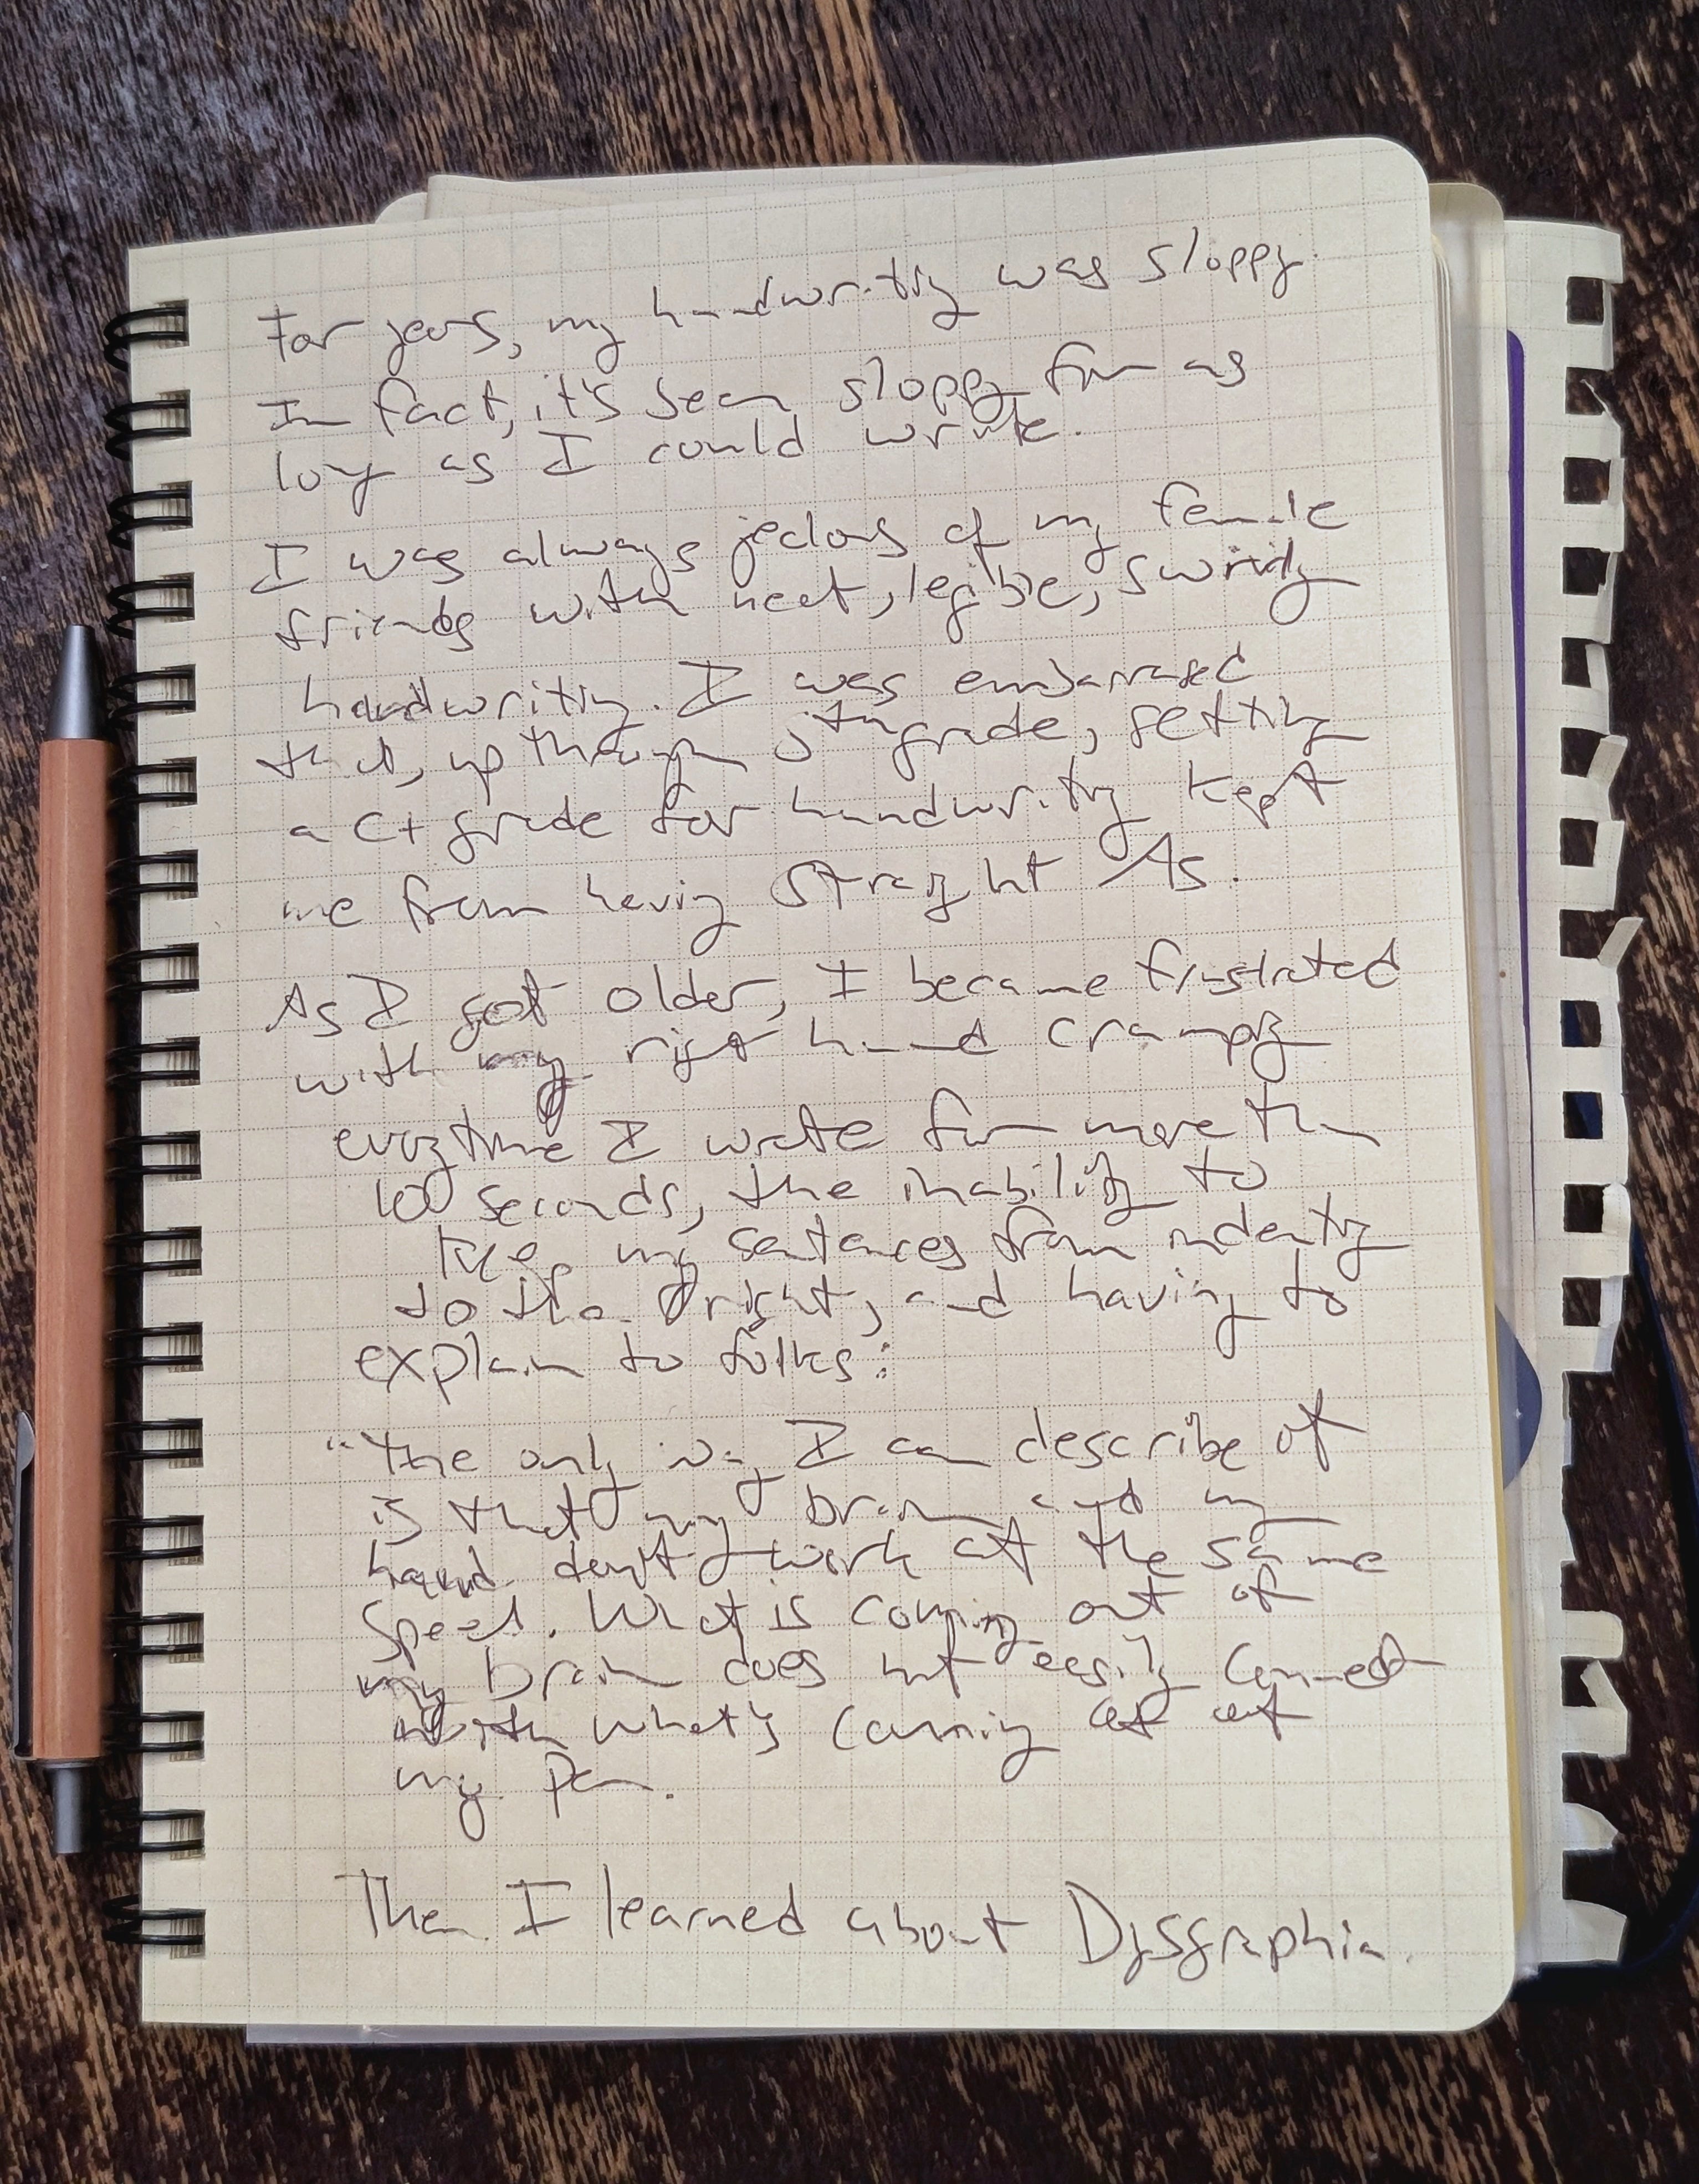 For years, my handwriting was sloppy.
In fact, it's been sloppy for as
long as I could write.
I was always jealous of my female
friends with neat, legible, swirly
handwriting. I was embarrased
that, up through 5th grade, getting
a C+ grade for handwriting kept
me from having straight As.
As I got older, I became frustrated
with my right hand cramping
everytime I wrote for more than
10 seconds, the inability to
keep my sentences from indenting
to the right, and having to
explain to folks:
"The only way I can describe it
is that my brain and my
hand don't work at the same
speed. What is coming out of
my brain does not easily connect
with what's coming out
my pen.
Then I learned about Dysgraphia.